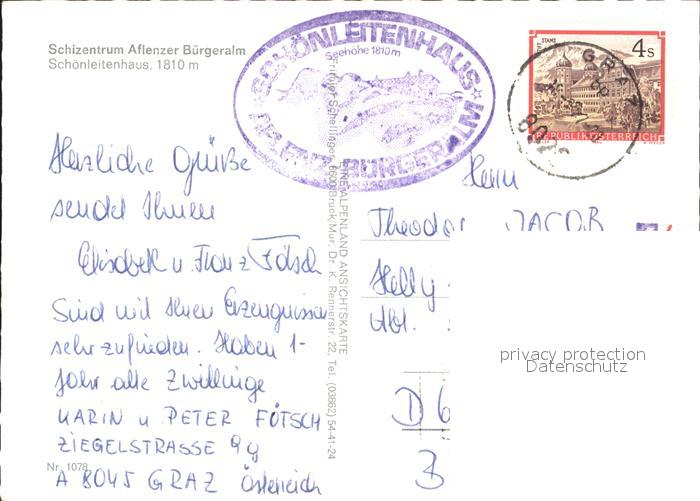 Schizentrum Aflenzer Bürgeralm
Schönleitenhaus, 1810 m
SCHÖNLEITENHAUS
Seehöhe 1810 m
AFLENZ BÜRGERALM
STIFT STAMS
4 S
REPUBLIK ÖSTERREICH
GRAZ
Herzliche Grüße
sendet Ihnen
Elisabeth u. Franz Fötsch
Sind mit Ihren Erzeugnissen
sehr zufrieden. Haben 1-
Jahr alte Zwillinge
KARIN u PETER FÖTSCH
ZIEGELSTRASSE 9g
A 8045 GRAZ Österreich
Nr. 1078
EINE ALPENLAND ANSICHTSKARTE
8600 Bruck/Mur, Dr. K. Rennerstr. 22, Tel. (03862) 54-41-24
Herrn
Theodor JACOB
Abt.
D 6
privacy protection
Datenschutz